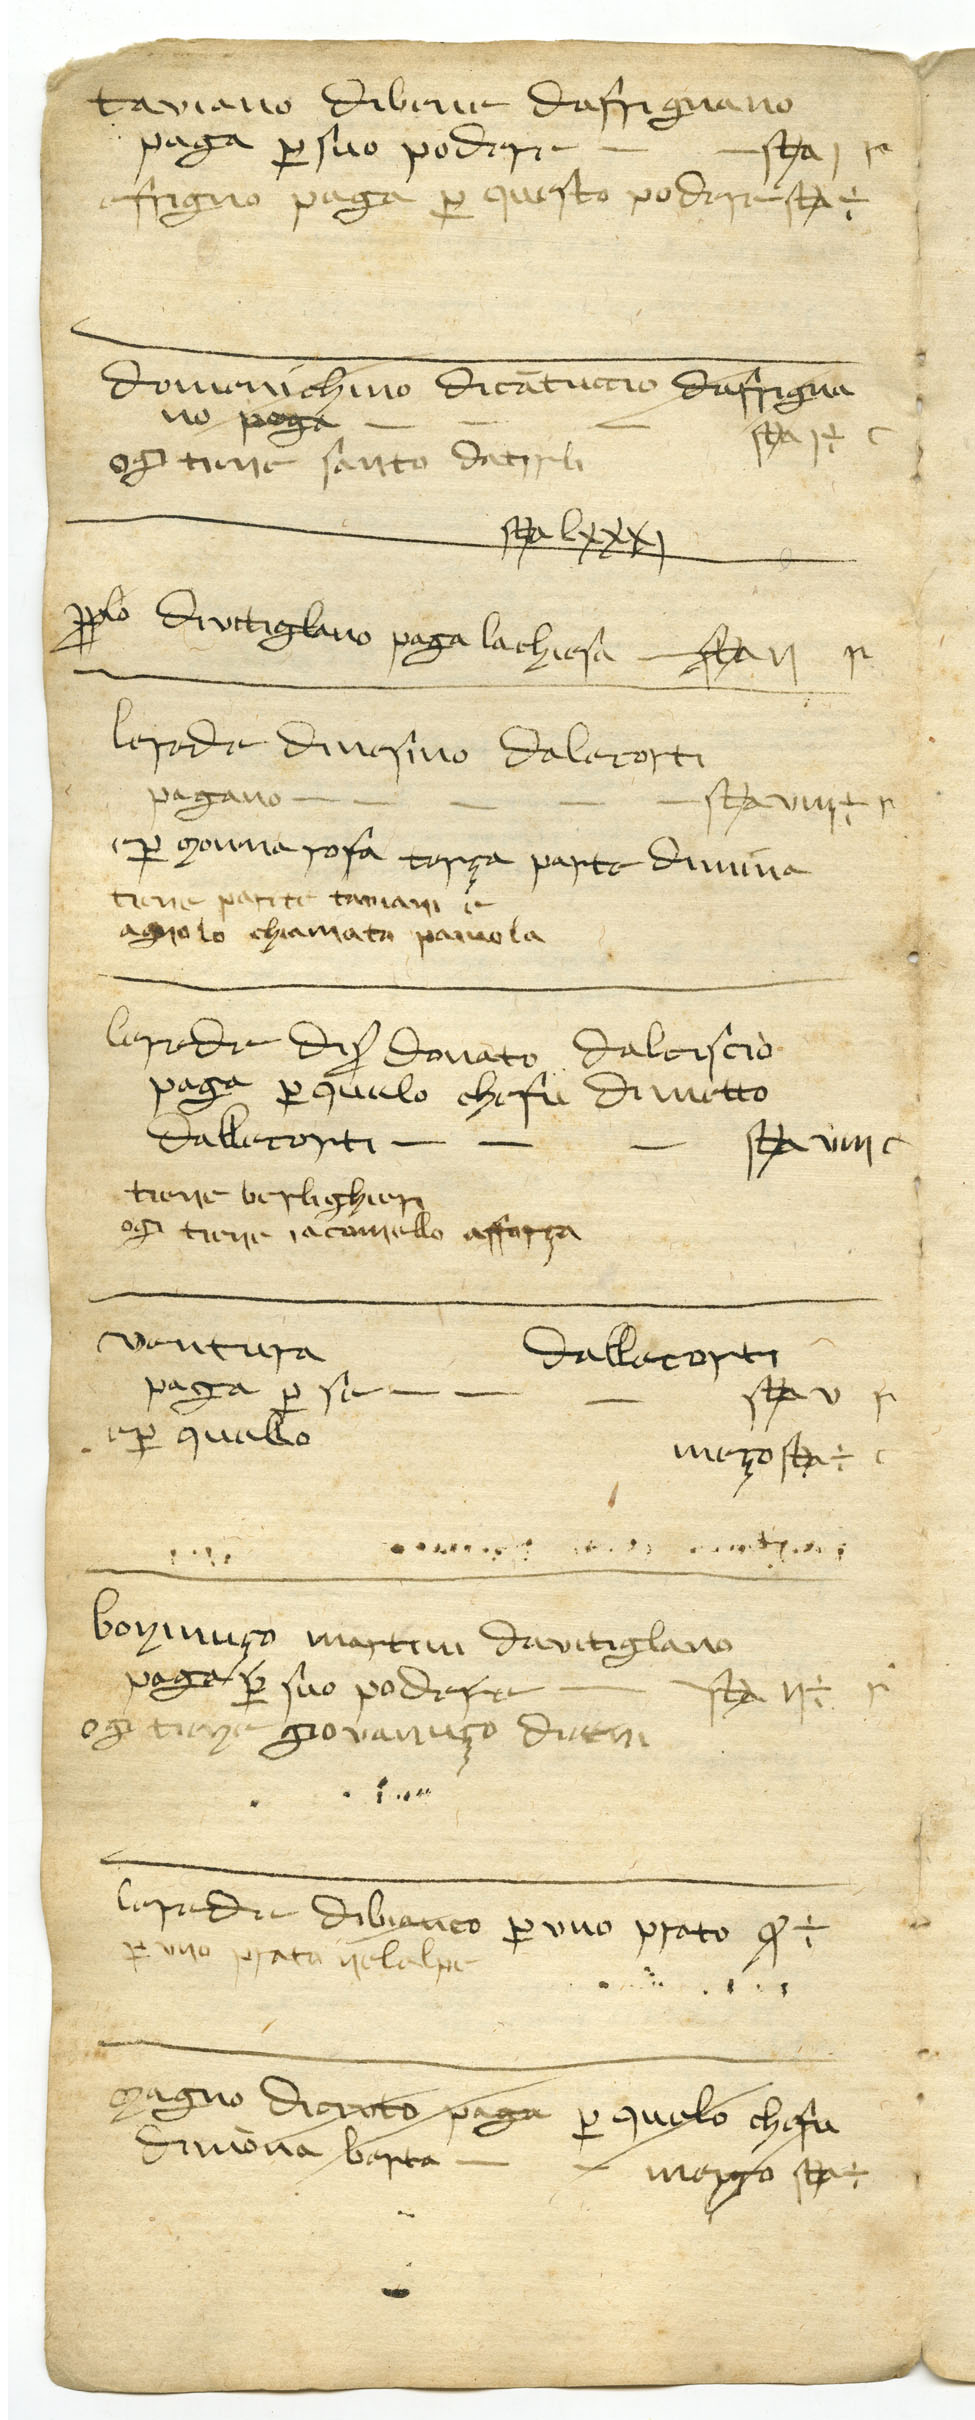 taviano dibene daffrignano
paga p suo podere — — sta i r
effrigno paga p questo podere sta ÷
domenichino dicātuccio daffrigna
no paga — — — sta i ÷ c
ogi tiene santo
sta lxxxi
pplo divitiglano paga lachiesa — sta ii r
lerede dinesino dalecorti
pagano — — — — — sta viii ÷ r
ep monna rosa terça parte
tiene parte
agnolo chiamato
lerede di s donato
paga p quelo chefu
dallecorti — — — sta viii c
tiene berlighieri
ogi tiene iacomello
ventura dallecorti
paga p se — — — sta v r
ep quello meço sta ÷ c
martini davitiglano
paga p suo podere — — sta ii ÷ r
ogi tiene giovanuço
lerede dibianco p uno prato ÷
p uno prato nelalpe
magno paga p quelo chefu
dimōna berta — — meço sta ÷